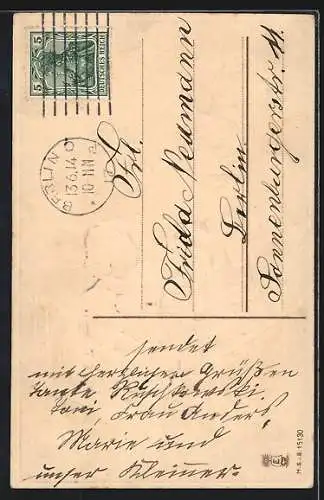 5
DEUTSCHES REICH
5
BERLIN O
13.6.14
10-11 N
Frl.
Frida Neumann
Berlin
Sonnenburgerstr. 11.
sendet
mit herzlichen Grüßen
Tante,
Toni, Frau Anders,
Marie und
unser Kleiner.
H.S.i.B. 15130